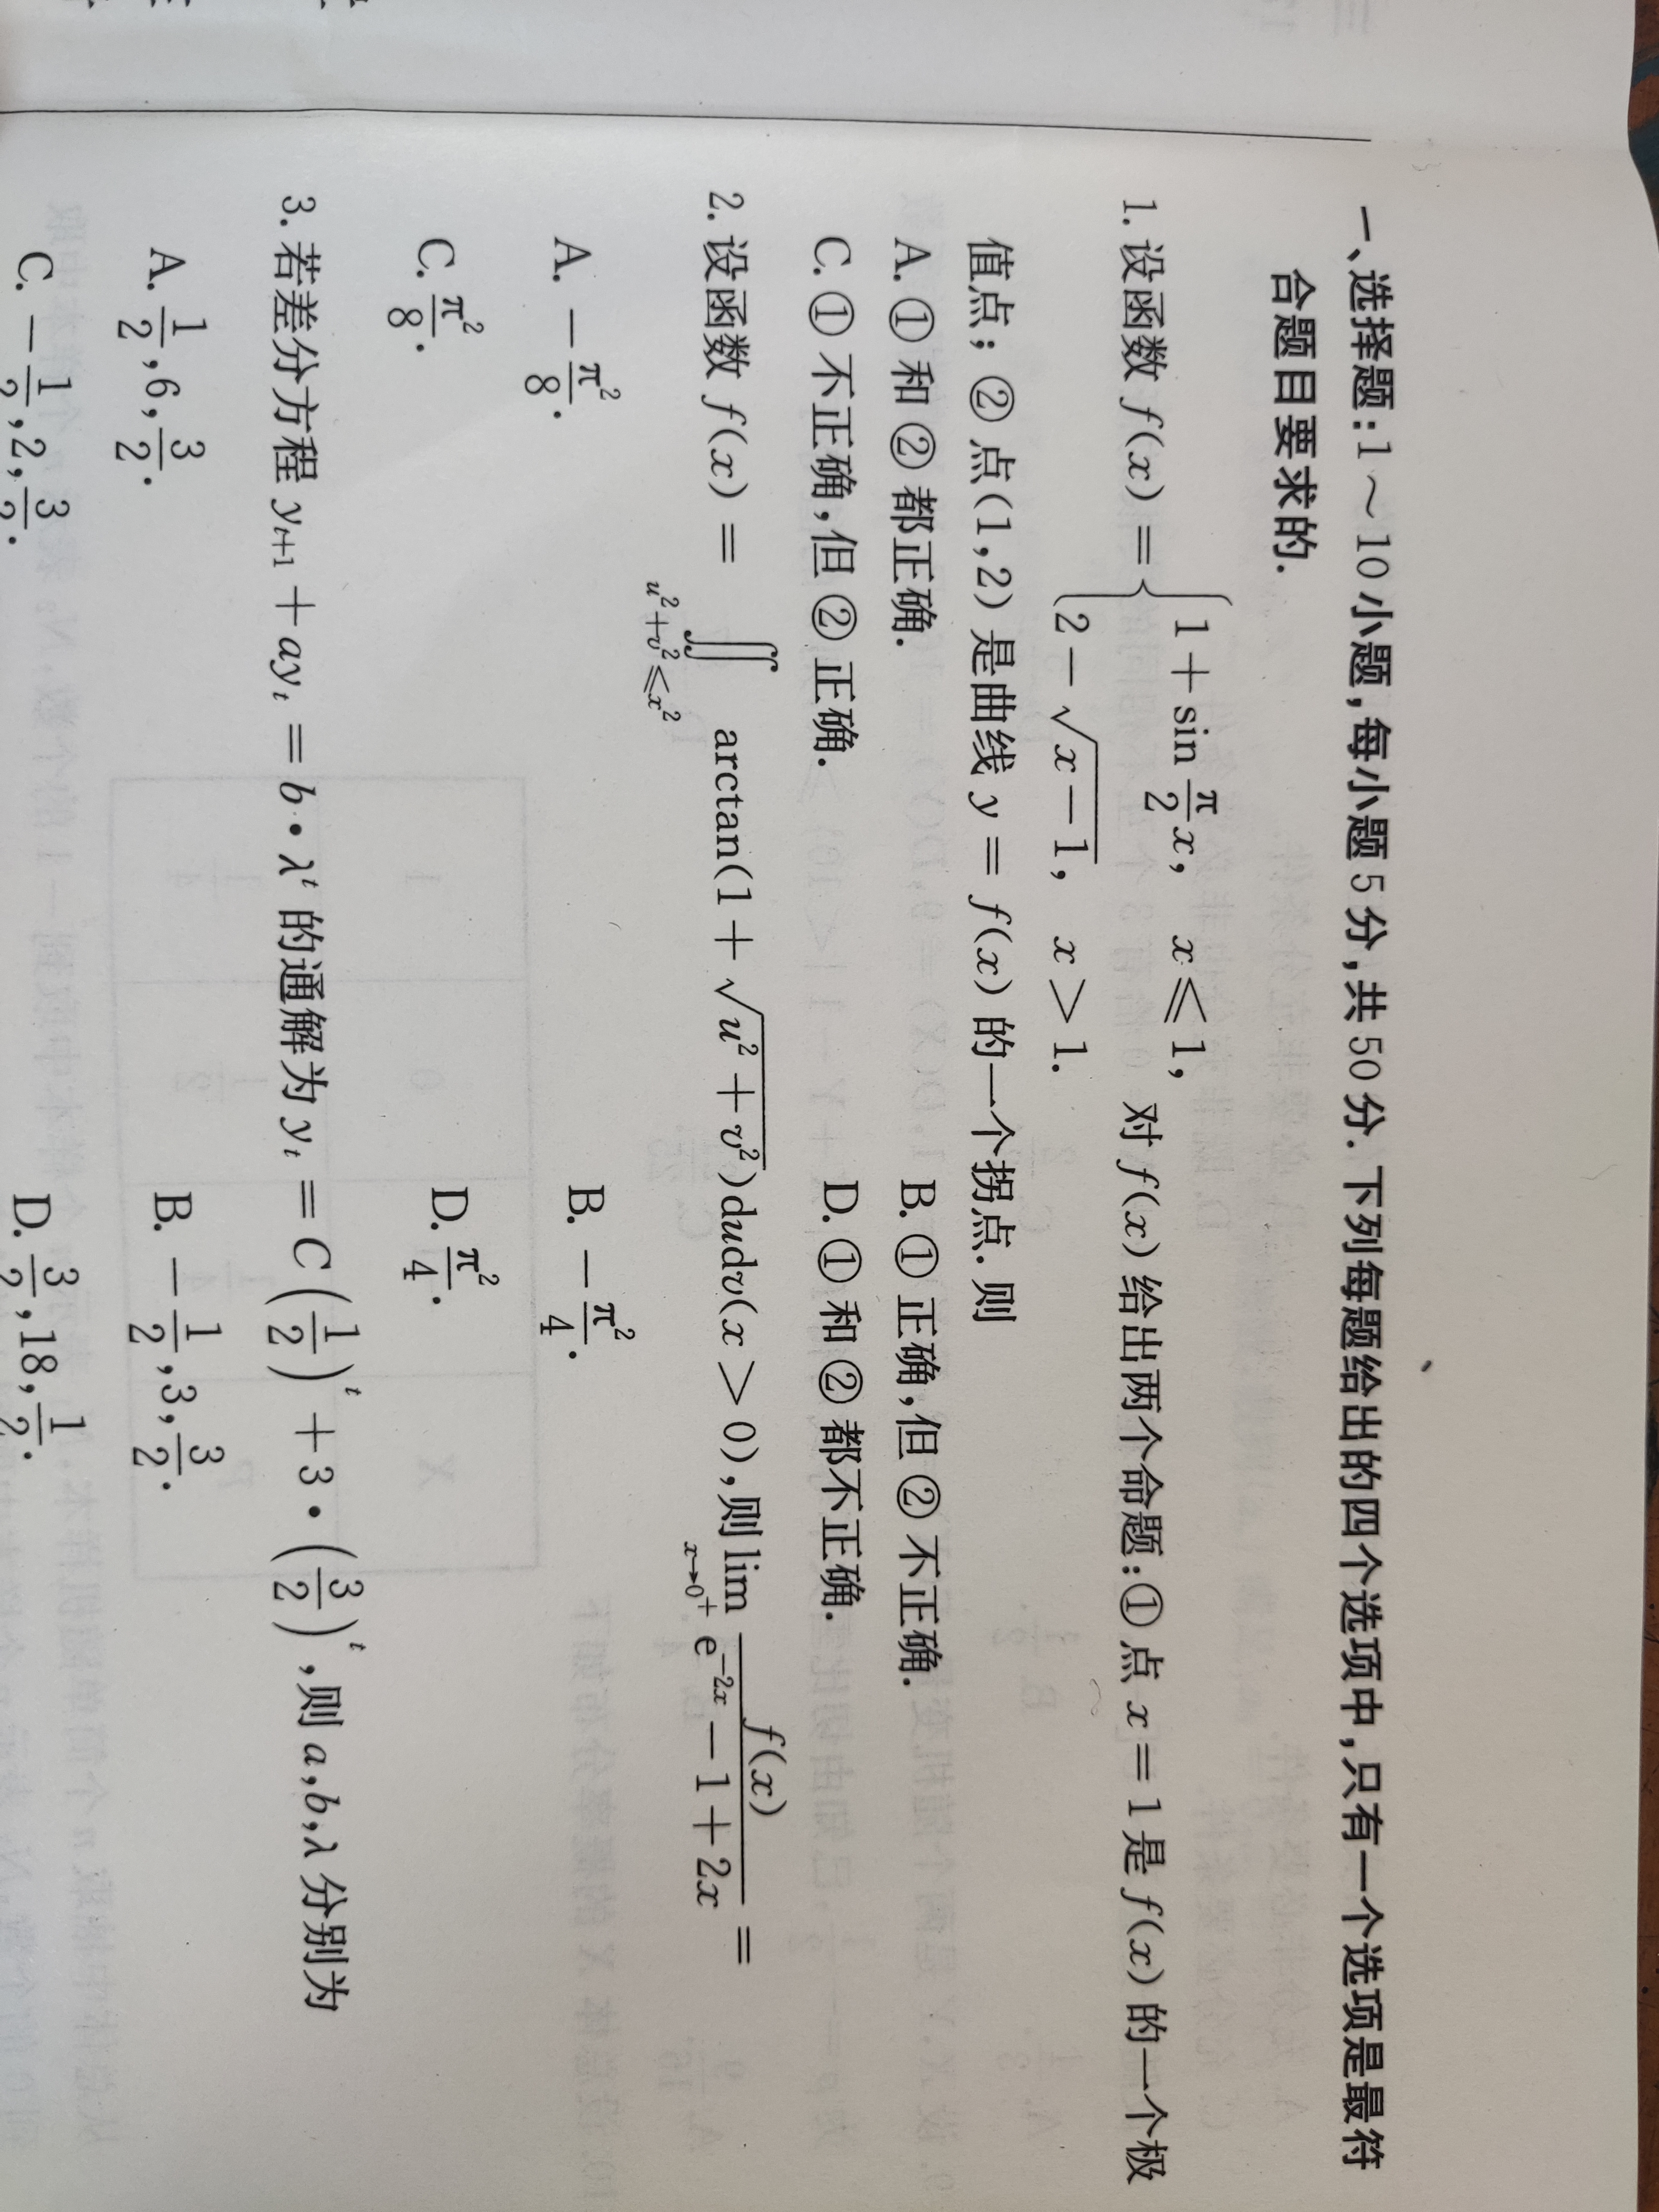 一、选择题:1～10小题,每小题5分,共50分.下列每题给出的四个选项中,只有一个选项是最符
合题目要求的.
1. 设函数 f(x) = { 1 + sin π/2 x, x ≤ 1, 2 − √(x−1), x > 1. 对 f(x) 给出两个命题:① 点 x = 1 是 f(x) 的一个极
值点;② 点(1,2) 是曲线 y = f(x) 的一个拐点.则
A. ① 和 ② 都正确. B. ① 正确,但 ② 不正确.
C. ① 不正确,但 ② 正确. D. ① 和 ② 都不正确.
2. 设函数 f(x) = ∬_{u²+v²≤x²} arctan(1 + √(u² + v²))dudv(x > 0),则 lim_{x→0⁺} f(x)/(e^{−2x} − 1 + 2x) =
A. − π²/8. B. − π²/4.
C. π²/8. D. π²/4.
3. 若差分方程 y_{t+1} + ay_t = b · λ^t 的通解为 y_t = C(1/2)^t + 3 · (3/2)^t,则 a,b,λ 分别为
A. 1/2,6,3/2. B. − 1/2,3,3/2.
C. − 1/2,2,3/2. D. 3/2,18,1/2.